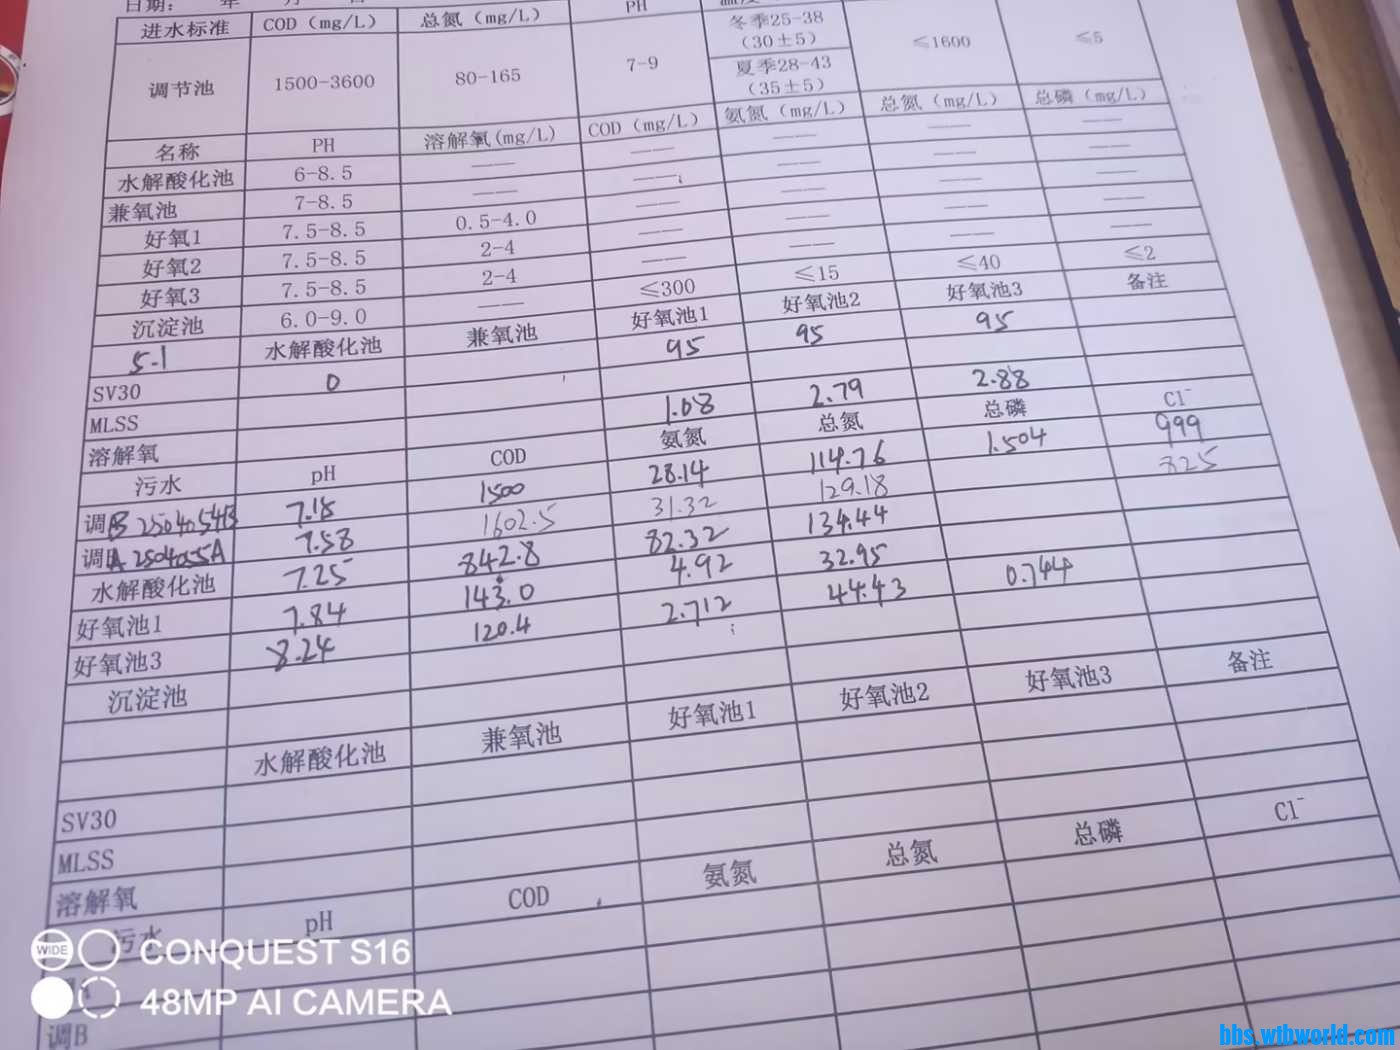 日期： 年 月
进水标准 COD（mg/L） 总氮（mg/L） PH
调节池 1500-3600 80-165 7-9 冬季25-38（30±5） 夏季28-43（35±5） ≤1600 ≤5
名称 PH 溶解氧(mg/L) COD（mg/L） 氨氮（mg/L） 总氮（mg/L） 总磷（mg/L）
水解酸化池 6-8.5 —— —— —— —— ——
兼氧池 7-8.5 —— —— —— —— ——
好氧1 7.5-8.5 0.5-4.0 —— —— —— ——
好氧2 7.5-8.5 2-4 —— —— —— ——
好氧3 7.5-8.5 2-4 —— —— —— ——
沉淀池 6.0-9.0 —— ≤300 ≤15 ≤40 ≤2
5-1 水解酸化池 兼氧池 好氧池1 好氧池2 好氧池3 备注
SV30 0 95 95 95
MLSS
溶解氧 1.08 2.79 2.88
污水 pH COD 氨氮 总氮 总磷 Cl⁻
调B 7.18 1500 28.14 114.76 1.504 999
调A 7.58 1602.5 31.32 129.18 825
水解酸化池 7.25 842.8 82.32 134.44
好氧池1 7.84 143.0 4.92 32.95
好氧池3 8.24 120.4 2.712 44.43 0.744
沉淀池
水解酸化池 兼氧池 好氧池1 好氧池2 好氧池3 备注
SV30
MLSS
溶解氧
污水 pH COD 氨氮 总氮 总磷 Cl⁻
调B
WIDE CONQUEST S16
48MP AI CAMERA
bbs.wtbworld.com